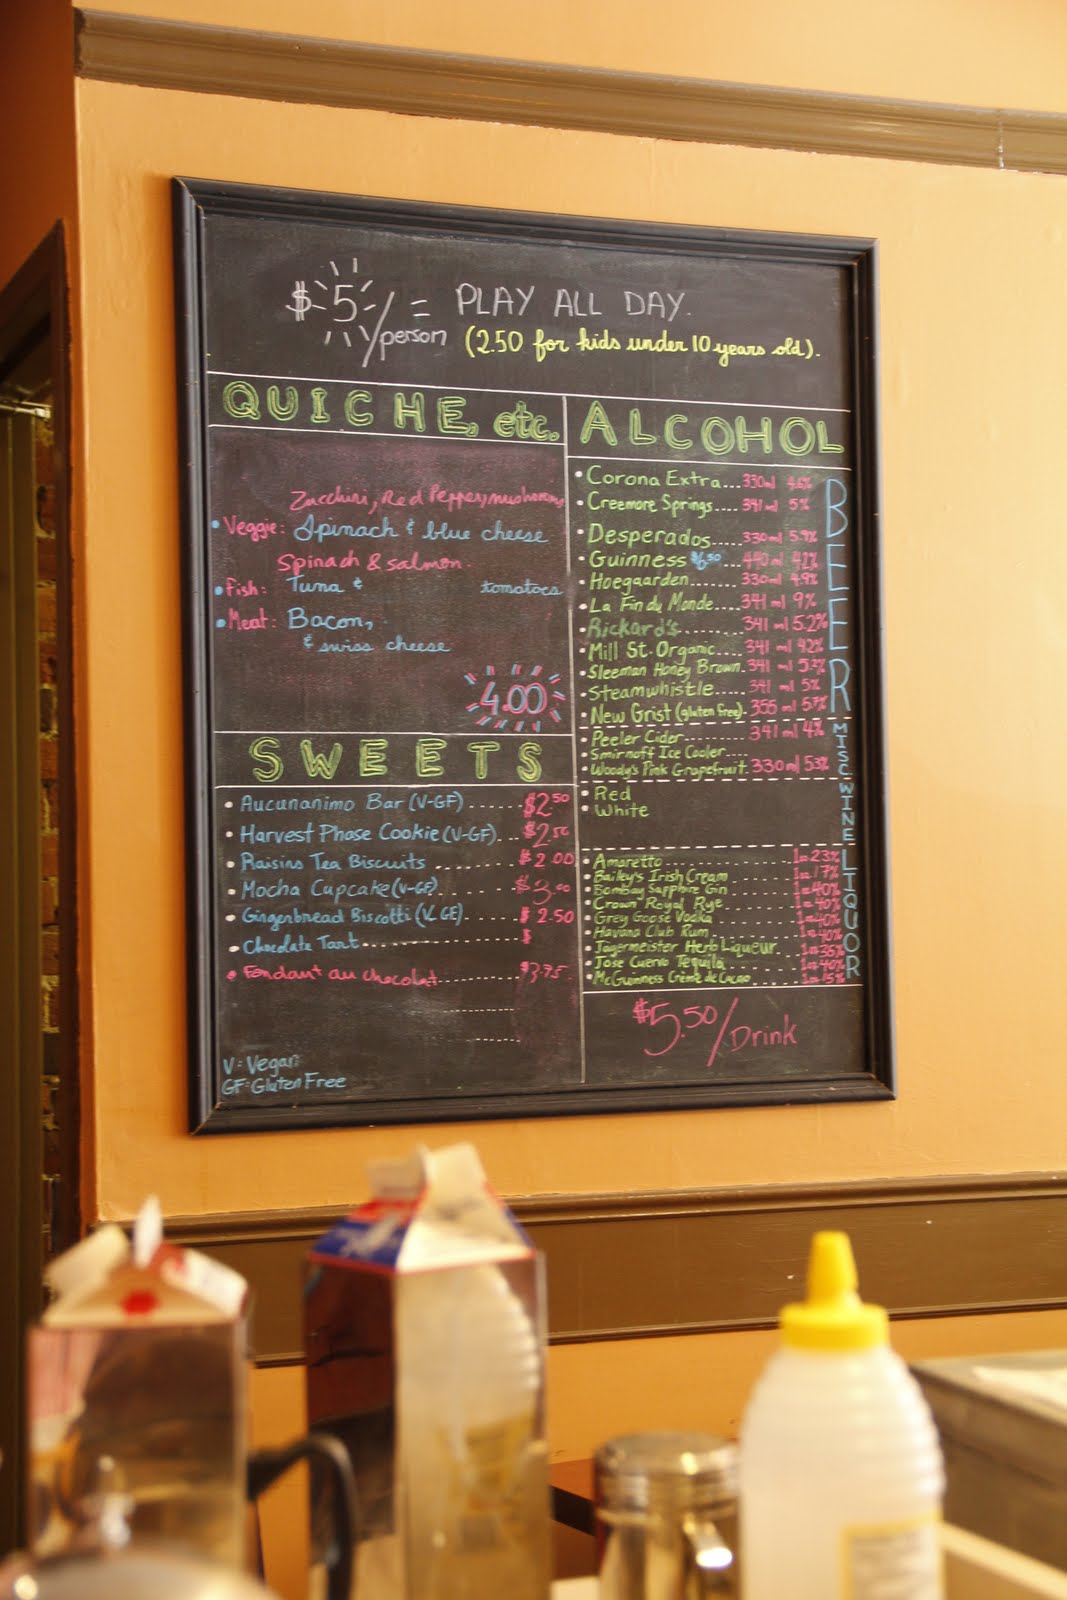 $5/person = PLAY ALL DAY.
(2.50 for kids under 10 years old).
QUICHE, etc.
Zucchini, Red Pepper, mushrooms
• Veggie: Spinach & blue cheese
Spinach & salmon.
• Fish: Tuna & tomatoes
• Meat: Bacon,
& swiss cheese
4.00
SWEETS
• Aucunanimo Bar (V-GF) ...... $2.50
• Harvest Phase Cookie (V-GF). .. $2.50
• Raisins Tea Biscuits ....... $2.00
• Mocha Cupcake (V-GF). ...... $3.00
• Gingerbread Biscotti (V. GF) ..... $2.50
• Chocolate Tart............... $
• Fondant au chocolat........... $3.75
V: Vegan
GF: Gluten Free
ALCOHOL
BEER
• Corona Extra... 330ml 4.6%
• Creemore Springs.... 341 ml 5%
• Desperados..... 330ml 5.9%
• Guinness $6.50 ... 440ml 4.2%
• Hoegaarden....... 330ml 4.9%
• La Fin du Monde.... 341 ml 9%
• Rickard's........ 341 ml 5.2%
• Mill St. Organic.... 341 ml 4.2%
• Sleeman Honey Brown. 341 ml 5.2%
• Steamwhistle..... 341 ml 5%
• New Grist (gluten free). 355 ml 5.7%
MISC
• Peeler Cider....... 341 ml 4%
• Smirnoff Ice Cooler....
• Woody's Pink Grapefruit. 330ml 5.3%
WINE
• Red
• White
LIQUOR
• Amaretto 1oz 23%
• Bailey's Irish Cream 1oz 17%
• Bombay Sapphire Gin 1oz 40%
• Crown Royal Rye 1oz 40%
• Grey Goose Vodka 1oz 40%
• Havana Club Rum 1oz 40%
• Jägermeister Herb Liqueur 1oz 35%
• Jose Cuervo Tequila 1oz 40%
• McGuinness Crème de Cacao 1oz 15%
$5.50/Drink